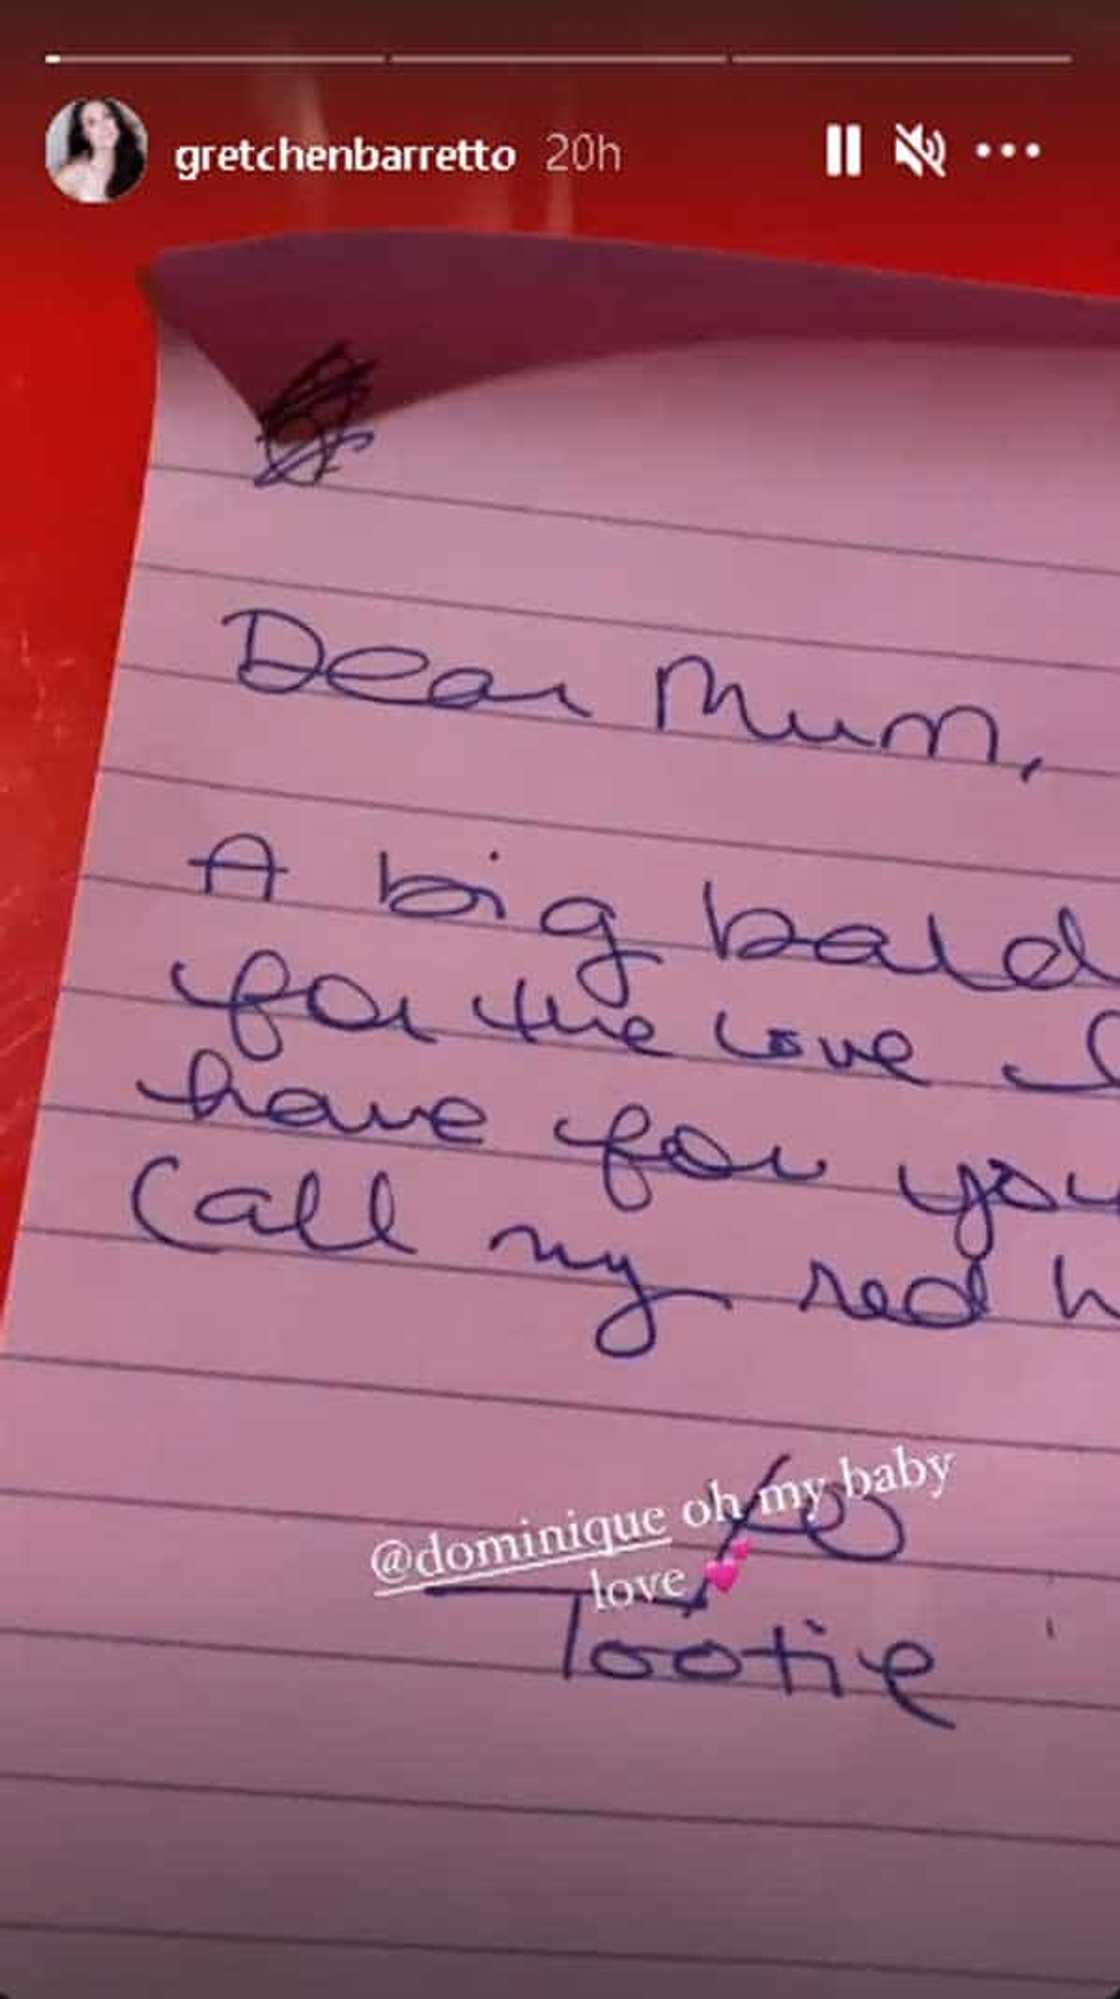 gretchenbarretto 20h
Dear Mum,
A big bald
for the love I
have for you
Call my red h
xo
@dominique oh my baby
love 💕
Tootie